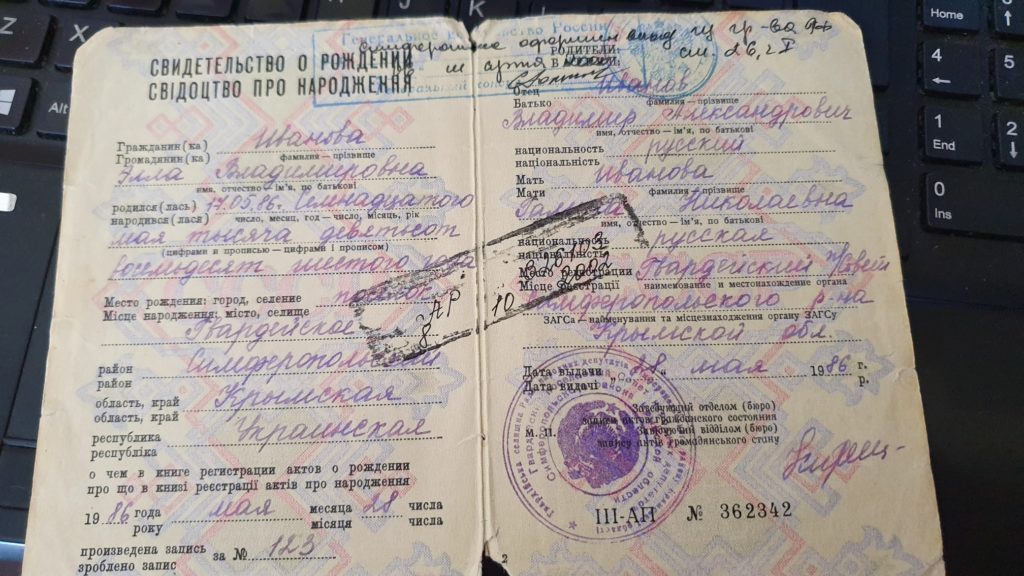 СВИДЕТЕЛЬСТВО О РОЖДЕНИИ
СВІДОЦТВО ПРО НАРОДЖЕННЯ
Гражданин(ка) Иванова
Громадянин(ка) фамилия — прізвище
Элла Владимировна
имя, отчество — ім'я, по батькові
родился(лась) 17.05.86г. Семнадцатого
народився(лася) число, месяц, год — число, місяць, рік
мая тысяча девятьсот
(цифрами и прописью — цифрами і прописом)
восемьдесят шестого года
Место рождения: город, селение поселок
Місце народження: місто, селище
Гвардейское
район Симферопольский
район
область, край Крымская
область, край
республика Украинская
республіка
о чем в книге регистрации актов о рождении
про що в книзі реєстрації актів про народження
1986 года мая месяца 28 числа
року місяця числа
произведена запись за № 123
зроблено запис
Генеральное России
РОДИТЕЛИ:
Отец Иванов
Батько фамилия — прізвище
Владимир Александрович
имя, отчество — ім'я, по батькові
национальность русский
національність
Мать Иванова
Мати фамилия — прізвище
Николаевна
имя, отчество — ім'я, по батькові
национальность русская
національність
Место регистрации Гвардейский
Місце реєстрації наименование и местонахождение органа
Симферопольского р-на
ЗАГСа — найменування та місцезнаходження органу ЗАГСу
Крымской обл
Дата выдачи 28 „ мая 1986 г.
Дата видачі р.
Заведующий отделом (бюро)
записи актов гражданского состояния
М. П. Завідуючий відділом (бюро)
запису актів громадянського стану
III-АП № 362342
2
Home
4
1
End
0
Ins
Alt
Z
X